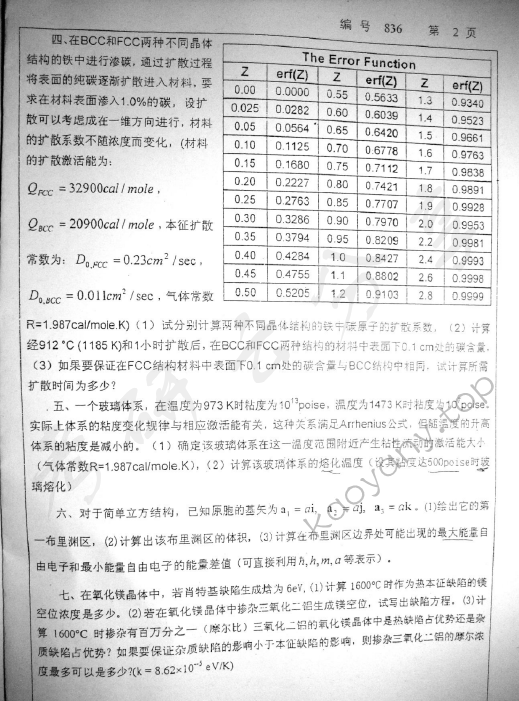 编 号 836 第 2 页
四、在BCC和FCC两种不同晶体
结构的铁中进行渗碳，通过扩散过程
将表面的纯碳逐渐扩散进入材料，要
求在材料表面渗入1.0%的碳，设扩
散可以考虑成在一维方向进行，材料
的扩散系数不随浓度而变化，(材料
的扩散激活能为：
Q_FCC = 32900cal / mole ，
Q_BCC = 20900cal / mole ，本征扩散
常数为：D_0,FCC = 0.23cm² / sec ，
D_0,BCC = 0.011cm² / sec ，气体常数
The Error Function
Z erf(Z) Z erf(Z) Z erf(Z)
0.00 0.0000 0.55 0.5633 1.3 0.9340
0.025 0.0282 0.60 0.6039 1.4 0.9523
0.05 0.0564 0.65 0.6420 1.5 0.9661
0.10 0.1125 0.70 0.6778 1.6 0.9763
0.15 0.1680 0.75 0.7112 1.7 0.9838
0.20 0.2227 0.80 0.7421 1.8 0.9891
0.25 0.2763 0.85 0.7707 1.9 0.9928
0.30 0.3286 0.90 0.7970 2.0 0.9953
0.35 0.3794 0.95 0.8209 2.2 0.9981
0.40 0.4284 1.0 0.8427 2.4 0.9993
0.45 0.4755 1.1 0.8802 2.6 0.9998
0.50 0.5205 1.2 0.9103 2.8 0.9999
R=1.987cal/mole.K)（1）试分别计算两种不同晶体结构的铁中碳原子的扩散系数，（2）计算
经912 °C (1185 K)和1小时扩散后，在BCC和FCC两种结构的材料中表面下0.1 cm处的碳含量.
（3）如果要保证在FCC结构材料中表面下0.1 cm处的碳含量与BCC结构中相同，试计算所需
扩散时间为多少？
五、一个玻璃体系，在温度为973 K时粘度为10¹³poise，温度为1473 K时粘度为10 poise.
实际上体系的粘度变化规律与相应激活能有关，这种关系满足Arrhenius公式，但随温度的升高
体系的粘度是减小的。（1）确定该玻璃体系在这一温度范围附近产生粘性流动的激活能大小
（气体常数R=1.987cal/mole.K)，（2）计算该玻璃体系的熔化温度（设其粘度达500poise时玻
璃熔化）
六、对于简单立方结构，已知原胞的基矢为 a₁ = ai, a₂ = aj, a₃ = ak。(1)绘出它的第
一布里渊区，(2)计算出该布里渊区的体积，(3)计算在布里渊区边界处可能出现的最大能量自
由电子和最小能量自由电子的能量差值（可直接利用ℏ,h,m,a等表示）。
七、在氧化镁晶体中，若肖特基缺陷生成焓为 6eV, (1)计算 1600°C 时作为热本征缺陷的镁
空位浓度是多少。(2)若在氧化镁晶体中掺杂三氧化二铝生成镁空位，试写出缺陷方程，(3)计
算 1600°C 时掺杂有百万分之一（摩尔比）三氧化二铝的氧化镁晶体中是热缺陷占优势还是杂
质缺陷占优势？如果要保证杂质缺陷的影响小于本征缺陷的影响，则掺杂三氧化二铝的摩尔浓
度最多可以是多少?(k = 8.62×10⁻⁵ eV/K)
kaoyany.top